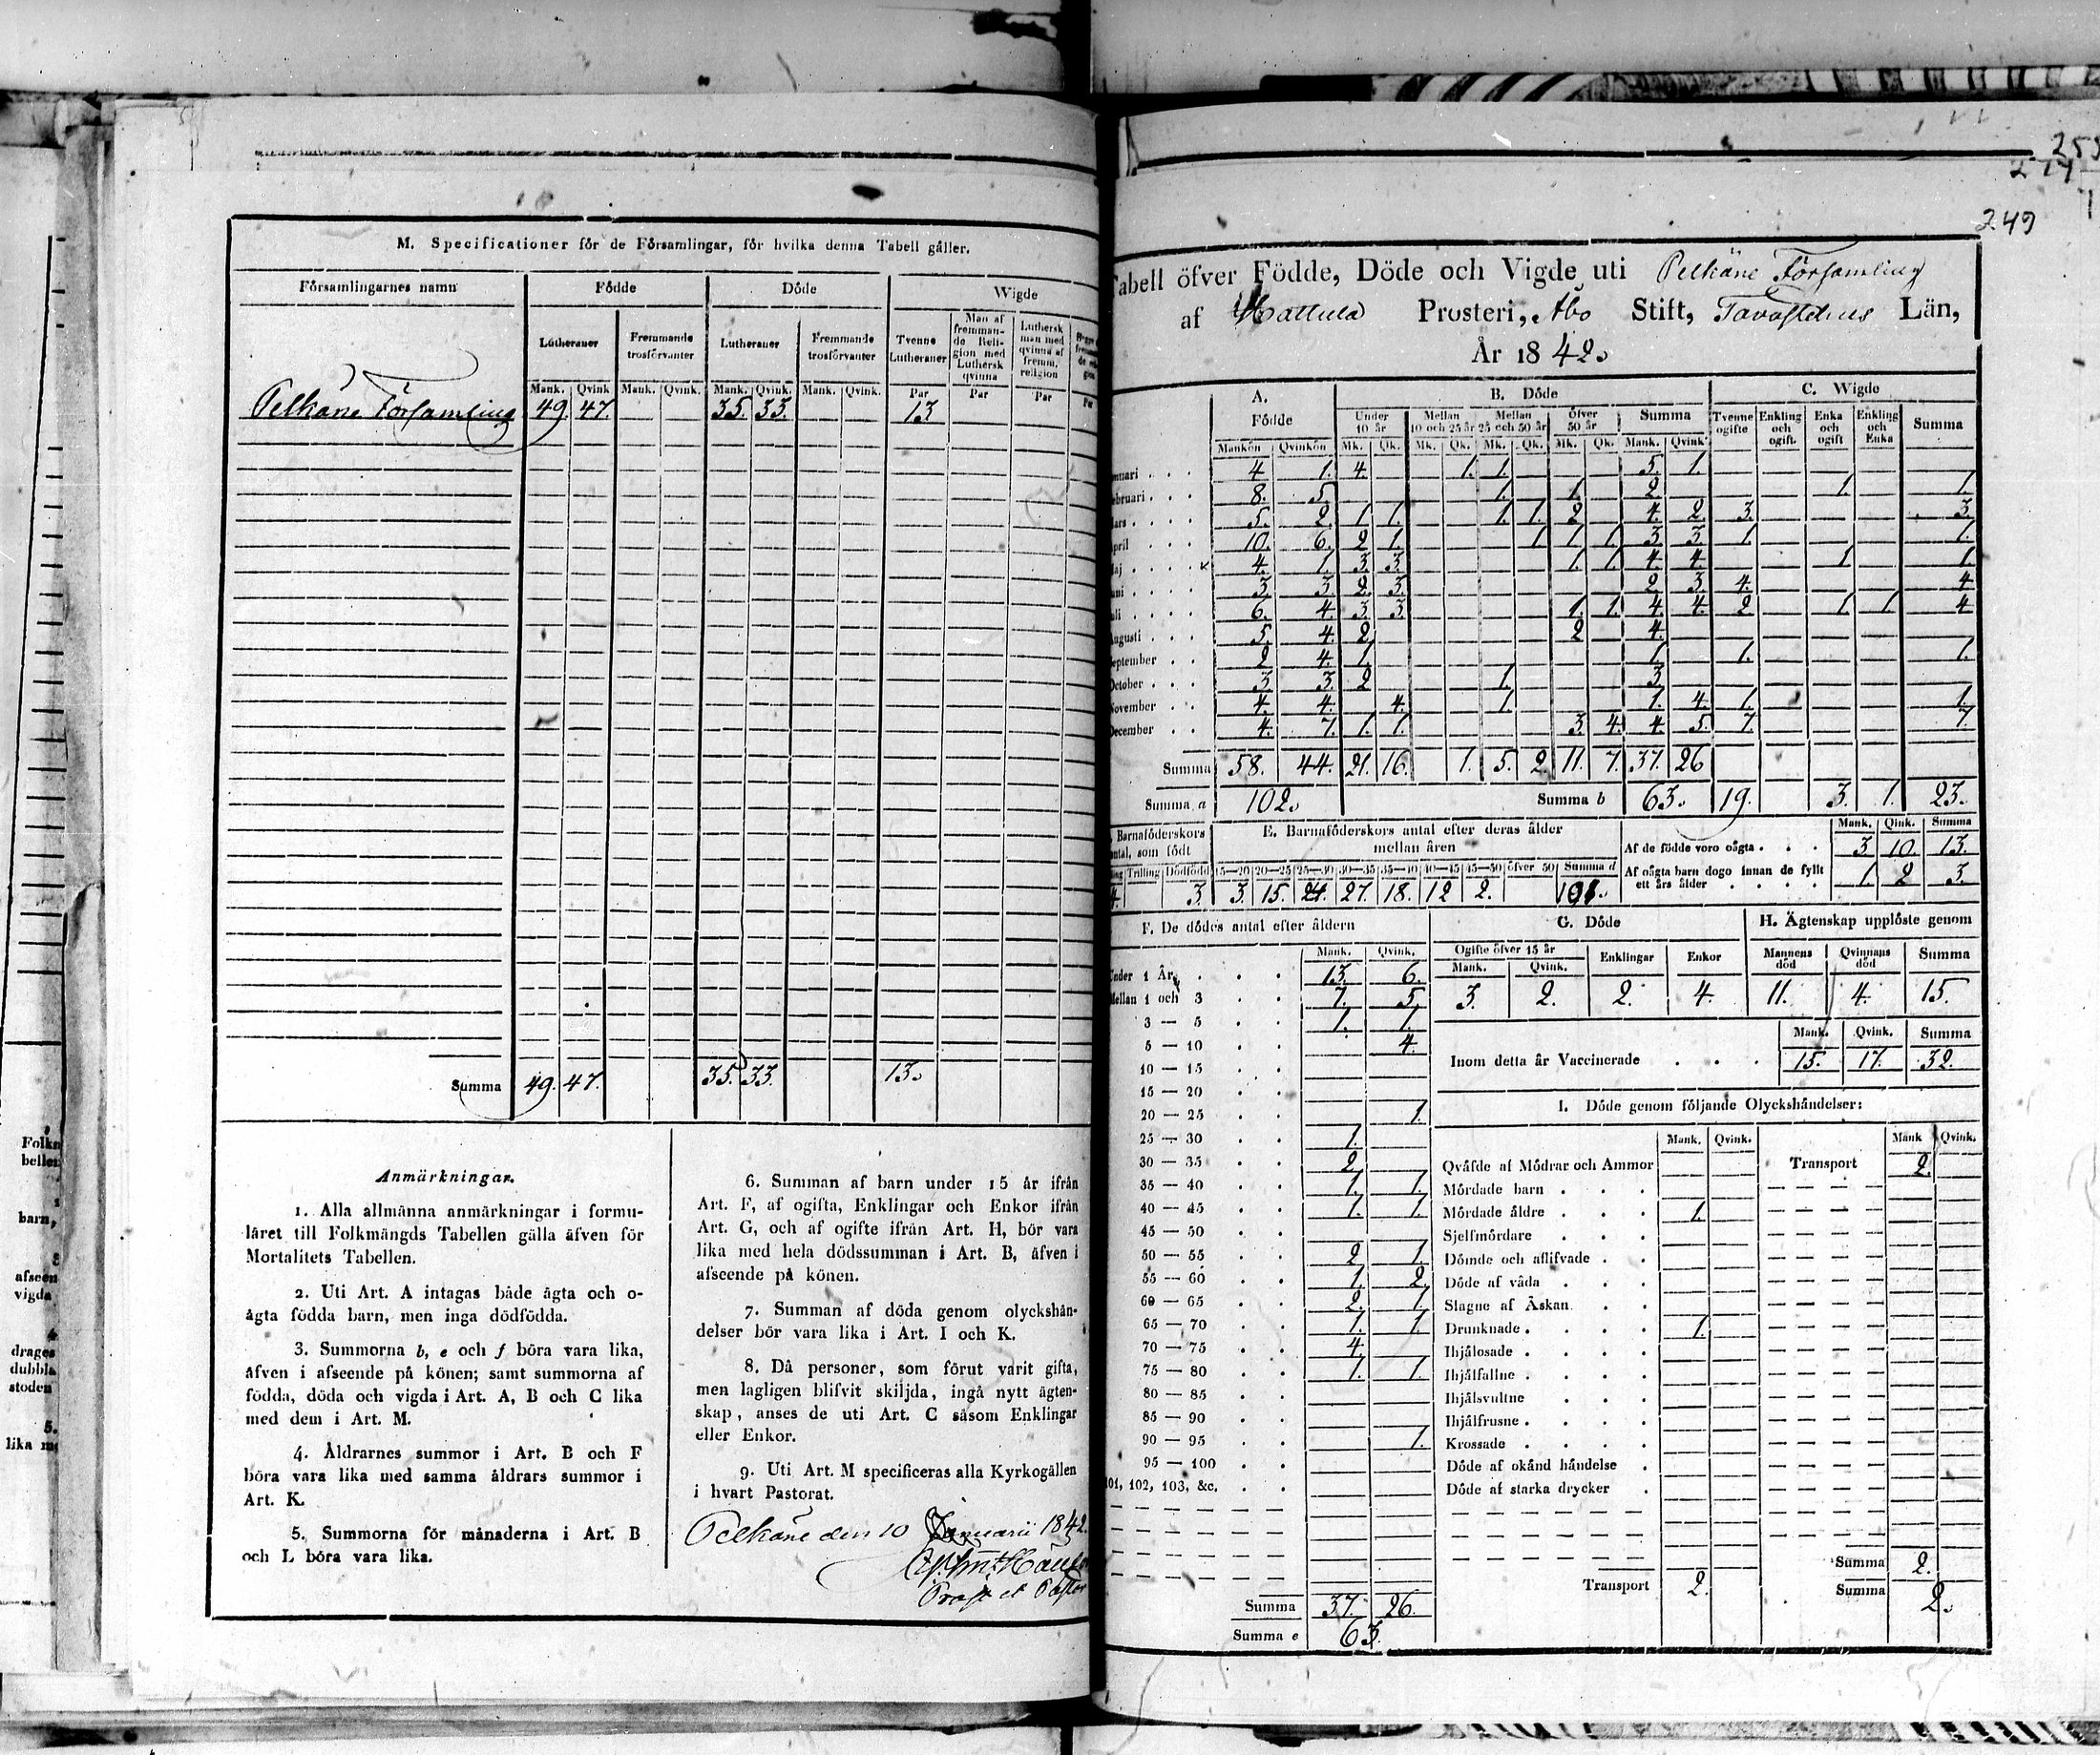 M. Specificationer för de Församlingar, för hvilka denna Tabell gäller.
Församlingarnes namn Födde Döde Wigde
Lutheraner Fremmande trosförvanter Lutheraner Fremmande trosförvanter Tvenne Lutheraner Man af fremmande Religion med Luthersk qvinna Luthersk man med qvinna af fremm. religion
Mank. Qvink Mank. Qvink. Mank. Qvink. Mank. Qvink. Par Par Par
Pelkäne Församling 49. 47. 35. 33. 13
Summa 49. 47. 35. 33. 13.
Anmärkningar.
1. Alla allmänna anmärkningar i formu-
läret till Folkmängds Tabellen gälla äfven för
Mortalitets Tabellen.
2. Uti Art. A intagas både ägta och o-
ägta födda barn, men inga dödfödda.
3. Summorna b, e och f böra vara lika,
äfven i afseende på könen; samt summorna af
födda, döda och vigda i Art. A, B och C lika
med dem i Art. M.
4. Åldrarnes summor i Art. B och F
böra vara lika med samma åldrars summor i
Art. K.
5. Summorna för månaderna i Art. B
och L böra vara lika.
6. Summan af barn under 15 år ifrån
Art. F, af ogifta, Enklingar och Enkor ifrån
Art. G, och af ogifte ifrån Art. H, bör vara
lika med hela dödssumman i Art. B, äfven i
afseende på könen.
7. Summan af döda genom olyckshän-
delser bör vara lika i Art. I och K.
8. Då personer, som förut varit gifta,
men lagligen blifvit skiljda, ingå nytt ägten-
skap, anses de uti Art. C såsom Enklingar
eller Enkor.
9. Uti Art. M specificeras alla Kyrkogällen
i hvart Pastorat.
Pelkäne den 10 Januarii 1842.
Prost et Pastor
249
Tabell öfver Födde, Döde och Vigde uti Pelkäne Församling
af Hattula Prosteri, Åbo Stift, Tavastehus Län,
År 1842.
A. Födde B. Döde C. Wigde
Under 10 år Mellan 10 och 25 år Mellan 25 och 50 år Öfver 50 år Summa Tvenne ogifte Enkling och ogift. Enka och ogift Enkling och Enka Summa
Mankön Qvinkön Mk. Qk. Mk. Qk. Mk. Qk. Mk. Qk. Mank. Qvink.
Januari 4. 1. 4. 1. 1. 5. 1.
Februari 8. 5. 1. 1. 2. 1. 1.
Mars 5. 2. 1. 1. 1. 1. 2 4. 2. 3. 3.
April 10. 6. 2. 1. 1. 1. 1. 3. 3. 1. 1.
Maj 4. 1. 3. 3. 1. 1. 4. 4. 1. 1.
Juni 3. 3. 2. 3. 2. 3. 4. 4.
Juli 6. 4. 3. 3. 1. 1. 4. 4. 2. 1. 1. 4
Augusti 5. 4. 2. 2 4.
September 2 4. 1. 1. 1. 1.
October 3. 3. 2 1. 3.
November 4. 4. 4. 1. 1. 4. 1. 1.
December 4. 7. 1. 1. 3. 4. 4. 5. 7. 7.
Summa 58. 44. 21. 16. 1. 5. 2. 11. 7. 37. 26
Summa a 102. Summa b 63. 19. 3. 1. 23.
Barnaföderskors antal, som födt
Trilling Dödfödd
4. 3.
E. Barnaföderskors antal efter deras ålder
mellan åren
15—20 20—25 25—30 30—35 35—40 40—45 45—50 öfver 50 Summa d
3. 15. 24. 27. 18. 12 2. 101.
Mank. Qink. Summa
Af de födde voro oägta 3 10. 13.
Af oägta barn dogo innan de fyllt ett års ålder 1. 2 3.
F. De dödes antal efter åldern
Mank. Qvink.
Under 1 År 13. 6.
Mellan 1 och 3 7. 5.
3 — 5 1. 1.
5 — 10 4.
10 — 15
15 — 20
20 — 25 1.
25 — 30 1.
30 — 35 2.
35 — 40 1. 1.
40 — 45 1. 1.
45 — 50
50 — 55 2. 1.
55 — 60 1. 2.
60 — 65 2. 1.
65 — 70 1. 1.
70 — 75 4.
75 — 80 1. 1.
80 — 85
85 — 90
90 — 95 1.
95 — 100
101, 102, 103, &c.
Summa 37. 26.
Summa e 63.
G. Döde
Ogifte öfver 15 år Enklingar Enkor
Mank. Qvink.
3. 2. 2. 4.
H. Ägtenskap upplöste genom
Mannens död Qvinnans död Summa
11. 4. 15.
Mank. Qvink. Summa
Inom detta år Vaccinerade 15. 17. 32.
I. Döde genom följande Olyckshändelser:
Mank. Qvink. Mank Qvink.
Qväfde af Mödrar och Ammor Transport 2.
Mördade barn
Mördade äldre 1.
Sjelfmördare
Dömde och aflifvade
Döde af våda
Slagne af Åskan
Drunknade 1.
Ihjälosade
Ihjälfallne
Ihjälsvultne
Ihjälfrusne
Krossade
Döde af okänd händelse
Döde af starka drycker
Summa 2.
Transport 2. Summa 2.